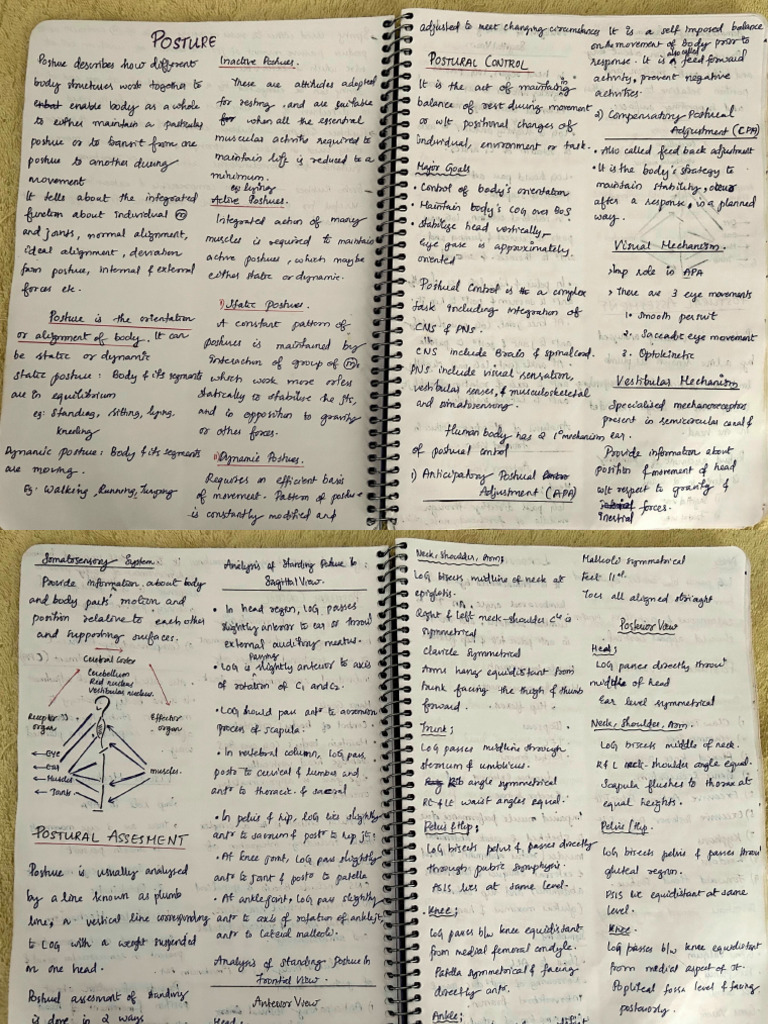 POSTURE
Posture describes how different
body structures work together to
enable body as a whole
to either maintain a particular
posture or to transit from one
posture to another during
movement
It tells about the integrated
function about individual (m)
and joints, normal alignment,
ideal alignment, deviation
from posture, internal & external
forces etc.
Posture is the orientation
or alignment of body. It can
be static or dynamic
Static posture : Body & its segments
are in equilibrium
eg: Standing, sitting, lying,
kneeling
Dynamic posture : Body & its segments
are moving.
Eg. Walking, Running, Jumping
Inactive Postures.
These are attitudes adopted
for resting, and are suitable
when all the essential
muscular activities required to
maintain life is reduced to a
minimum.
eg: lying
Active Postures.
Integrated action of many
muscles is required to maintain
active postures, which may be
either static or dynamic.
i) Static Postures.
A constant pattern of
postures is maintained by
interaction of group of (m)s
which work more or less
statically to stabilise the jts,
and in opposition to gravity
or other forces.
ii) Dynamic Postures.
Requires an efficient basis
of movement. Pattern of posture
is constantly modified and
adjusted to meet changing circumstances
POSTURAL CONTROL
It is the act of maintaining in
balance of rest during movement
or wrt positional changes of
individual, environment or task.
Major Goals
• Control of body's orientation
• Maintain body's COG over BOS
• Stabilise head vertically,
Eye gaze is approximately
oriented
Postural Control is a complex
task including integration of
CNS & PNS.
CNS include Brain & spinal cord.
PNS include visual sensation,
vestibular senses, & musculoskeletal
and somatosensory.
Human body has 2 1° mechanism
of postural control
1) Anticipatory Postural
Adjustment (APA)
It is a self imposed balance
on the movement of body prior to
response. It is also called a feed forward
activity, prevent negative
activities
2) Compensatory Postural
Adjustment (CPA)
• Also called feed back adjustment
• It is the body's strategy to
maintain stability, occur
after a response, in a planned
way.
Visual Mechanism.
Imp role in APA
There are 3 eye movements
1. Smooth persuit
2. Saccadic eye movement
3. Optokinetic
Vestibular Mechanism
Specialised mechanoreceptors
present in semicircular canal &
ear.
Provide information about
position & movement of head
wrt respect to gravity &
inertial forces.
Somatosensory System.
Provide information about body
and body parts' motion and
position relative to each other
and supporting surfaces.
Cerebral Cortex
Cerebellum
Red nucleus
Vestibular nucleus.
Receptor
organ
Effector
organ
Eye
Ear
Muscles
Joints
muscles.
POSTURAL ASSESMENT
Posture is usually analysed
by a line known as plumb
line, a vertical line corresponding
to LOG with a weight suspended
in one head.
Postural assesment of standing
is done in 2 ways
Analysis of Standing Posture in
Sagittal View.
• In head region, LOG passes
slightly anterior to ear or throu
external auditory meatus.
• LOG is passing slightly anterior to axis
of rotation of C1 and C2.
• LOG should pass antr to acromion
process of scapula.
• In vertebral column, LOG pass
postr to cervical & lumbar and
antr to thoracic & sacral
• In pelvis & hip, LOG lies slightly
antr to sacrum & postr to hip jt.
• At knee joint, LOG pass slightly
antr to joint & postr to patella
• At ankle joint, LOG pass slightly
antr to axis of rotation of ankle jt,
antr to lateral malleoli.
Analysis of Standing Posture In
Frontal View.
Anterior View
Head:
Neck, Shoulder, Arm;
LOG bisects midline of neck at
epiglotis.
Right & left neck-shoulder
symmetrical
Clavicle symmetrical
Arms hang equidistant from
trunk facing the thigh & thumb
forward.
Trunk;
LOG passes midline through
sternum & umblicus.
Rib angle symmetrical
Rt & Lt waist angles equal.
Pelvis & Hip;
LOG bisects pelvis & passes directly
through pubic symphysis.
ASIS lies at same level.
• Knee;
LOG passes b/w knee equidistant
from medial femoral condyle.
Patella symmetrical & facing
directly antr.
Ankle;
Malleoli symmetrical
Feet ||el.
Toes all aligned straight
Posterior View
Head;
LOG passes directly throu'
middle of head
Ear level symmetrical
Neck, Shoulder, Arm.
LOG bisects middle of neck.
R & L neck-shoulder angle equal.
Scapula flushes to thorax at
equal heights.
Pelvis / Hip.
LOG bisects pelvis & passes throu'
gluteal region.
PSIS be equidistant at same
level.
Knee.
LOG passes b/w knee equidistant
from medial aspect of it.
Popliteal fossa level & facing
posteriorly.